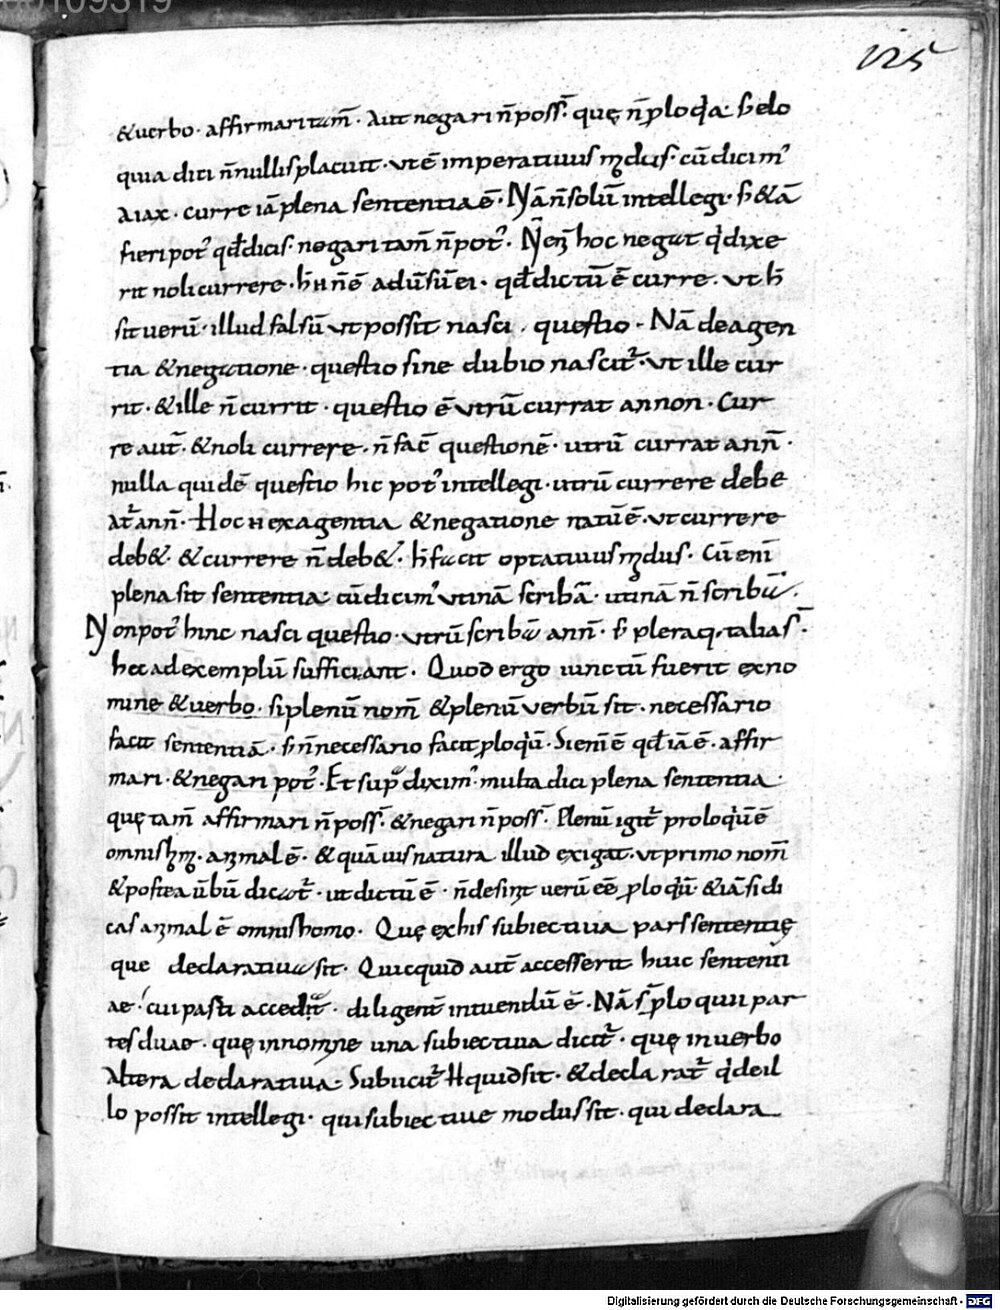 00109319
125
&uerbo· affirmari tam̅· Aut negari n̅ poss̅· quę n̅ ꝓloq̇a· s; elo
quia dici n̅ nullis placuit· vt e̅ imperatiuus m̊dus· cu̅ dicim᾽
Aiax· curre ia̅ plena sententia e̅· Na̅ n̅ solu̅ intellegi· s; & ia̅
fieri pot᾽ qđ dicis· negari tam̅ n̅ pot᾽· N̅ eni̅ hoc negat q̇ dixe
rit noli currere· n̅ e̅ adu̅su̅ ei· qđ dictu̅ e̅ curre· vt h̅
sit ueru̅· illud falsu̅ vt possit nasci· questio· Na̅ de agen
tia & negatione· questio sine dubio nascit᾽· vt ille cur
rit· & ille n̅ currit· questio e̅ vtru̅ currat annon· Cur
re aut̅· & noli currere· n̅ fac̅ questione̅· utru̅ currat an n̅·
nulla quide̅ questio hic pot᾽ intellegi· utru̅ currere debe
at᾽ an n̅· Hoc ex agentia & negatione natu̅ e̅· vt currere
deb&· & currere n̅ deb&· h̅ facit optatiuus m̊dus· Cu̅ eni̅
plena sit sententia· cu̅ dicim᾽ vtina̅ scriba̅· utina̅ n̅ scriba̅·
Non pot᾽ hinc nasci questio· vtru̅ scriba̅ an n̅· s; pleraq· talia s̅·
hęc ad exemplu̅ sufficiant· Quod ergo iunctu̅ fuerit ex no
mine & uerbo· si plenu̅ nom̅ & plenu̅ verbu̅ sit· necessario
facit sententia̅· s; n̅ necessario facit ꝓloq̇u̅· Si eni̅ e̅ qđ ia̅ e̅· affir
mari· & negari pot᾽· Et supͣ dixim᾽· multa dici plena sententia·
quę tam̅ affirmari n̅ poss̅· & negari n̅ poss̅· Plenu̅ igit᾽ proloq̇u̅ e̅
omnis hom̊· animal e̅· & qua̅uis natura illud exigat· vt primo nom̅
& postea u̅bu̅ dicat᾽· ut dictu̅ e̅· n̅ desinit ueru̅ ee̅ ꝓloq̇u̅· & ia̅ si di
cas animal e̅ omnis homo· Quę ex his subiectiua pars sententię
que declaratiua sit· Quicquid aut̅ accesserit huic sententi
ae· cui parti accedit᾽· diligent̅ intuendu̅ e̅· Na̅ s; ꝓloquii par
tes duae· quę in nomine una subiectiua dicit᾽· quę in uerbo
Altera declaratiua· Subiicit᾽ quid sit· & declarat᾽ q̇d de il
lo possit intellegi· qui subiectiue modus sit· qui declara
Digitalisierung gefördert durch die Deutsche Forschungsgemeinschaft - DFG